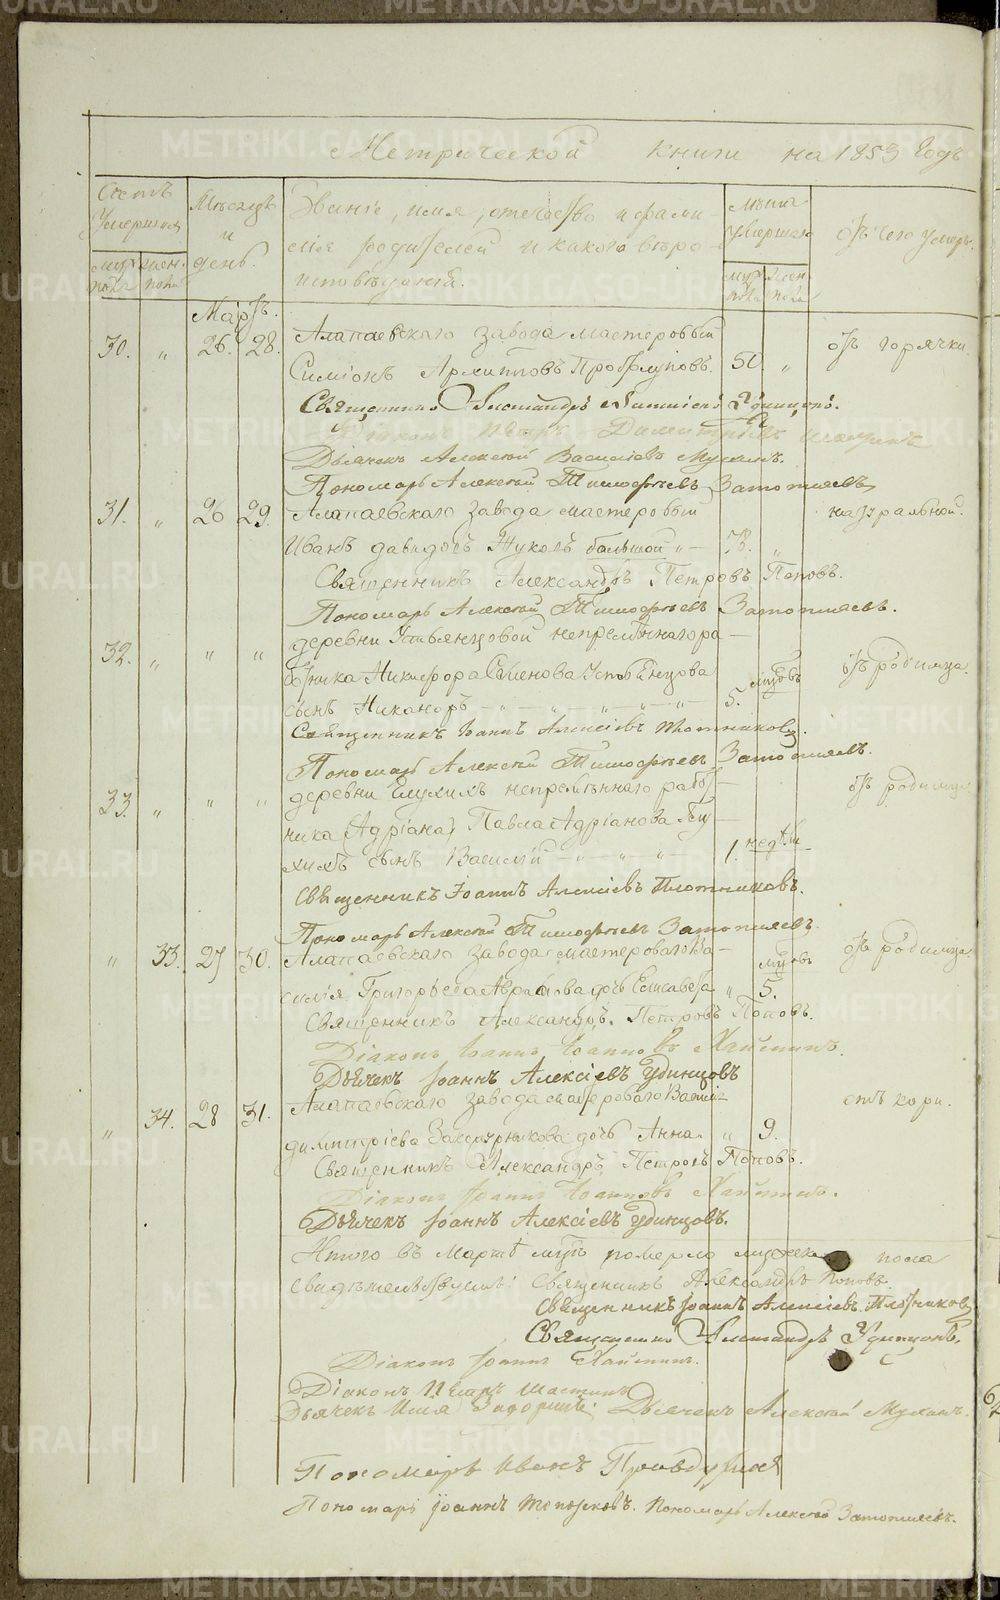 Метрической книги на 1853 Годъ
Счетъ Умершихъ
Мѣсяцъ и день.
Званіе, имя, отчество и фами-
лія родителей и какого вѣро-
исповѣданія.
Лѣта умершаго
отъ чего умеръ.
муж. пола
жен. пола
муж. пола
жен. пола
Мартъ.
30. „ 26. 28. Алапаевскаго завода мастеровый отъ горячки.
Симіонъ Архиповъ 50. „
Священникъ Александръ Удинцовъ.
Діаконъ Петръ Димитріевъ
Дьячекъ Алексѣй Васильевъ Мухинъ.
Пономарь Алексѣй Тимофѣевъ Затопляевъ
31. „ 26 29. Алапаевскаго завода мастеровый натуральной.
Иванъ Давидовъ Жуковъ большой „ „
Священникъ Александръ Петровъ Поповъ.
Пономарь Алексѣй Тимофѣевъ Затопляевъ.
32. „ „ „ деревни Устьянцовой непремѣннаго ра- отъ родимца.
ботника Никифора Семенова Устьянцова
сынъ Никаноръ 5. мцовъ
Священникъ Іоаннъ Алексіевъ Плотниковъ.
Пономарь Алексѣй Тимофѣевъ Затопляевъ.
33. „ „ „ деревни непремѣннаго работ- отъ родимца
ника (Адріана) Павла Адріанова
сынъ Василій 1. недѣли
Священникъ Іоаннъ Алексіевъ Плотниковъ.
Пономарь Алексѣй Тимофѣевъ Затопляевъ.
„ 33. 27 30. Алапаевскаго завода мастероваго Ва- отъ родимца.
силія Григорьева дочь Елисавета „ 5. мцовъ
Священникъ Александръ Петровъ Поповъ.
Діаконъ Іоаннъ Іоанновъ
Дьячекъ Іоаннъ Алексіевъ Удинцовъ
„ 34. 28 31. Алапаевскаго завода мастероваго Василія отъ кори.
Димитріева дочь Анна „ 9.
Священникъ Александръ Петровъ Поповъ.
Діаконъ Іоаннъ Іоанновъ
Дьячекъ Іоаннъ Алексіевъ Удинцовъ.
Итого въ Мартѣ мцѣ померло мужеска пола
свидѣтельствуемъ: Священникъ Александръ Поповъ
Священникъ Іоаннъ Алексіевъ Плотниковъ
Священникъ Александръ Удинцовъ.
Діаконъ Іоаннъ
Діаконъ Петръ
Дьячекъ Илія Дьячекъ Алексѣй Мухинъ.
Пономарь Иванъ
Пономарь Іоаннъ Топорковъ. Пономарь Алексѣй Затопляевъ.
METRIKI.GASO-URAL.RU